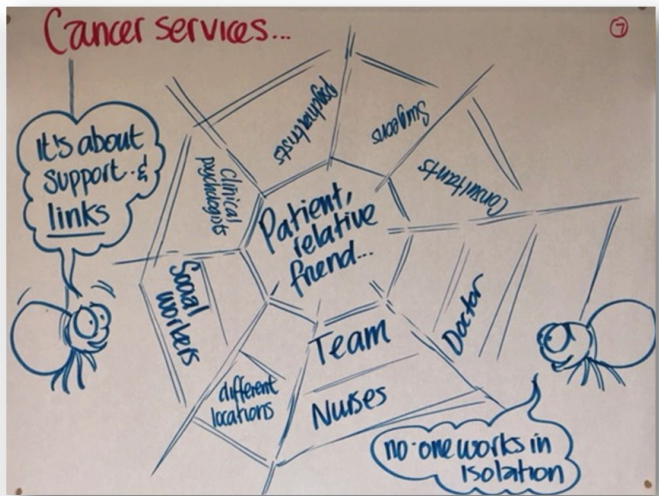 Cancer services...
7
it's about
support &
links
Psychiatrists
Surgeons
Consultants
Clinical
psychologists
Patient,
relative
friend...
Social
workers
Doctor
Team
Nurses
different
locations
no-one works in
isolation